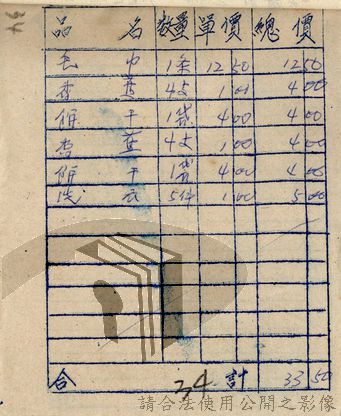 品名 數量 單價 總價
毛巾 1条 12 50 12 50
香菸 4支 1 00 4 00
餅干 1袋 4 00 4 00
香菸 4支 1 00 4 00
餅干 1袋 4 00 4 00
洗衣 5件 1 00 5 00
合計 33 50
34
請合法使用公開之影像